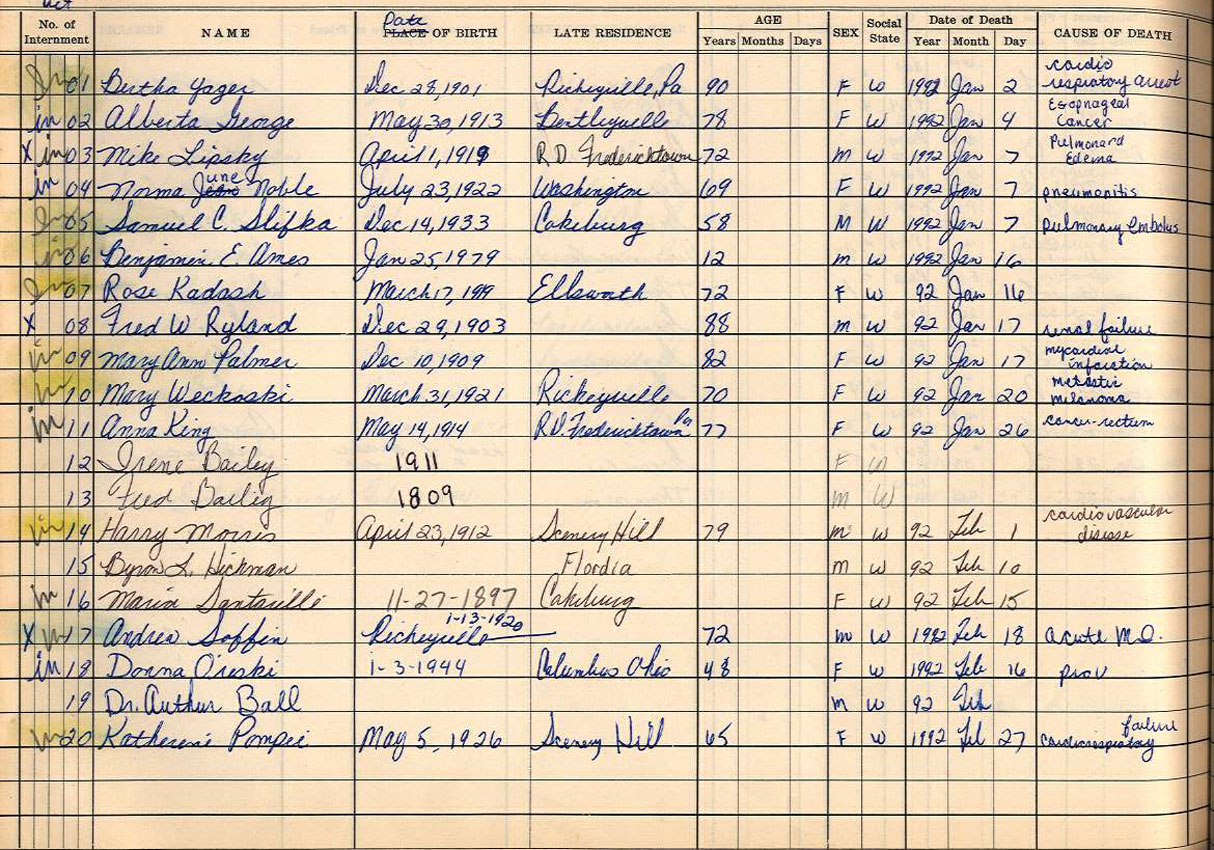 Act
No. of Internment NAME Date PLACE OF BIRTH LATE RESIDENCE AGE Years Months Days SEX Social State Date of Death Year Month Day CAUSE OF DEATH
in 01 Bertha Yager Dec 28, 1901 Richeyville, Pa 90 F W 1992 Jan 2 cardio respiratory arrest
in 02 Alberta George May 30, 1913 Bentleyville 78 F W 1992 Jan 4 Esophageal Cancer
X in 03 Mike Lipsky April 1, 1919 R.D. Fredericktown 72 m W 1992 Jan 7 Pulmonard Edema
in 04 Norma June Noble July 23, 1922 Washington 69 F W 1992 Jan 7 pneumonitis
in 05 Samuel C. Slifka Dec 14, 1933 Cokeburg 58 M W 1992 Jan 7 Pulmonary Embolus
in 06 Benjamin E. Ames Jan 25, 1979 12 m W 1992 Jan 16
in 07 Rose Kadash March 17, 1919 Ellsworth 72 F W 92 Jan 16
X 08 Fred W Ryland Dec 29, 1903 88 m W 92 Jan 17 renal failure
in 09 Mary Ann Palmer Dec 10, 1909 82 F W 92 Jan 17 myocardial infarction
in 10 Mary Weckoski March 31, 1921 Richeyville 70 F W 92 Jan 20 metastic melanoma
in 11 Anna King May 14, 1914 R.D. Fredericktown Pa 77 F W 92 Jan 26 cancer-rectum
12 Irene Bailey 1911 F W
13 Fred Bailey 1809 m W
in 14 Harry Morris April 23, 1912 Scenery Hill 79 m W 92 Feb 1 cardiovascular disease
15 Byron L. Hickman Flordia m W 92 Feb 10
in 16 Maria Santarilli 11-27-1897 Cokeburg F W 92 Feb 15
X in 17 Andrew Soffin Richeyville 1-13-1920 72 m W 1992 Feb 18 acute M.I.
in 18 Donna Oreski 1-3-1944 Columbus Ohio 48 F W 1992 Feb 16
19 Dr. Authur Ball m W 92 Feb
in 20 Katherine Pompei May 5, 1926 Scenery Hill 65 F W 1992 Feb 27 cardiorespiratory failure